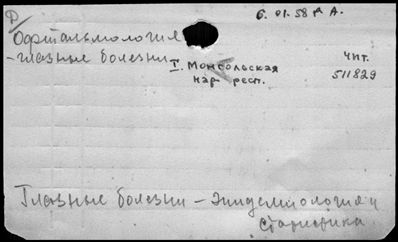 Ф
6.01.58 г А.
Офтальмология
- глазные болезни
I. Монгольская
нар. респ.
Чит.
511829
Глазные болезни - эпидемиология и
статистика